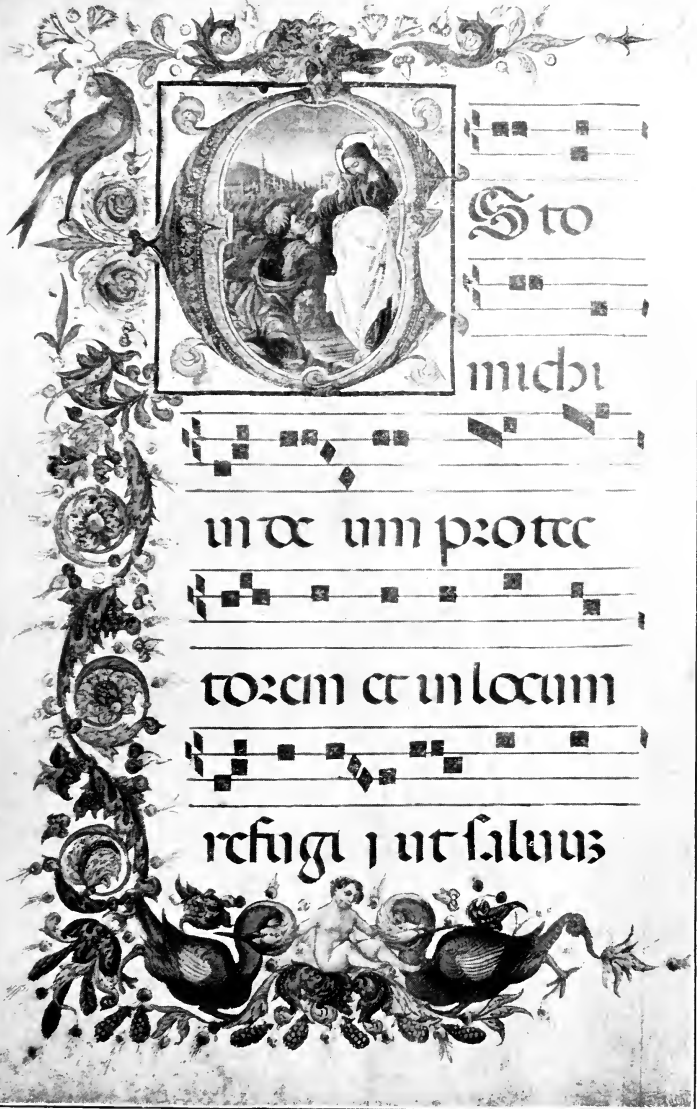 ESto
michi
in de um protec
torem et in locum
refugi j ut saluuz